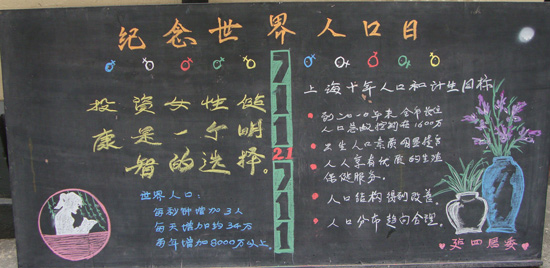 纪念世界人口日
投资女性健
康是一个明
智的选择。
世界人口:
每秒钟增加3人
每天增加约万
年增加8000万以上。
711
21
711
上海十年人口和计生目标
到二〇一〇年末全市
人口总数控制在1600万
人口素质明显提高
人人享有优质的生殖
保健服务。
人口结构得到改善。
人口分布趋向合理。
四居委